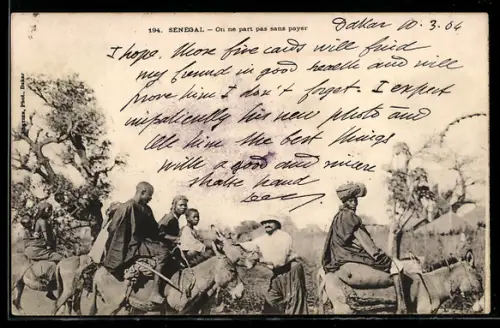 194. SENEGAL — On ne part pas sans payer
Dakar 10.3.04
I hope, those five cards will find
my friend in good health and will
prove him I don't forget. I expect
impatiently his new photo and
tell him the best things
with a good and
shake hand
Phot. Dakar